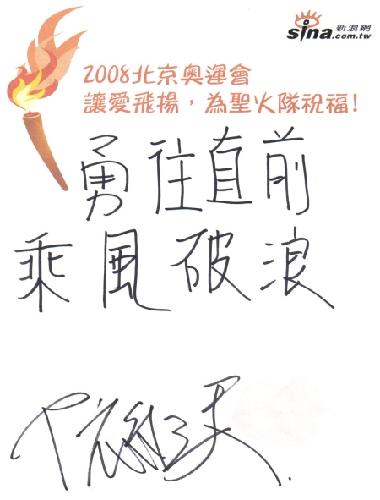 sina 新浪網
.com.tw
2008北京奧運會
讓愛飛揚，為聖火隊祝福！
勇往直前
乘風破浪